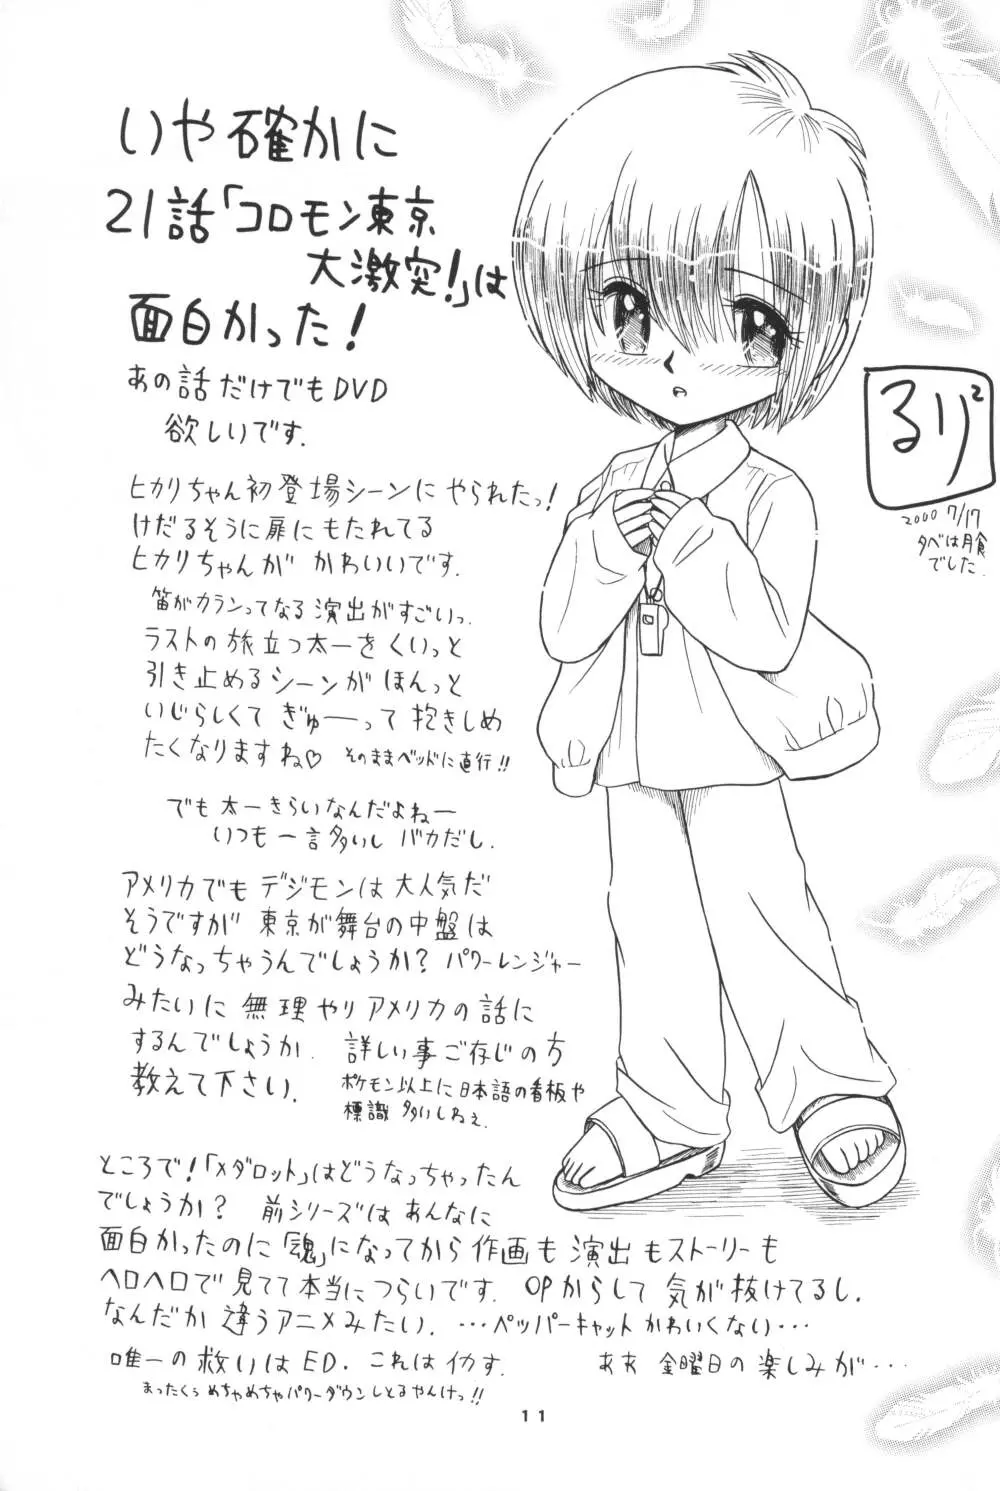 いや確かに
21話「コロモン東京
大激突!」は
面白かった!
あの話だけでもDVD
欲しいです.
ヒカリちゃん初登場シーンにやられたっ!
けだるそうに扉にもたれてる
ヒカリちゃんが かわいいです.
笛がカランってなる演出がすごいっ.
ラストの旅立つ太一をくいっと
引き止めるシーンが ほんっと
いじらしくて ぎゅーーって 抱きしめ
たくなりますね♡ そのままベッドに直行!!
でも 太一きらいなんだよねー
いつも 一言多いし バカだし.
アメリカでも デジモンは 大人気だ
そうですが 東京が舞台の中盤は
どうなっちゃうんでしょうか? パワーレンジャー
みたいに 無理やり アメリカの話に
するんでしょうか. 詳しい事ご存じの方
教えて下さい. ポケモン以上に日本語の看板や
標識 多いしねぇ.
ところで!「メダロット」はどうなっちゃったん
でしょうか? 前シリーズは あんなに
面白かったのに「魂」になってから 作画も 演出もストーリーも
ヘロヘロで 見てて本当につらいです. OPからして 気が抜けてるし.
なんだか 違うアニメみたい. …ペッパーキャット かわいくない…
唯一の救いは ED. これは イカす. ああ 金曜日の楽しみが…
まったくぅ めちゃめちゃパワーダウンしとるやんけっ!!
るり²
2000 7/17
夕べは月食
でした.
11